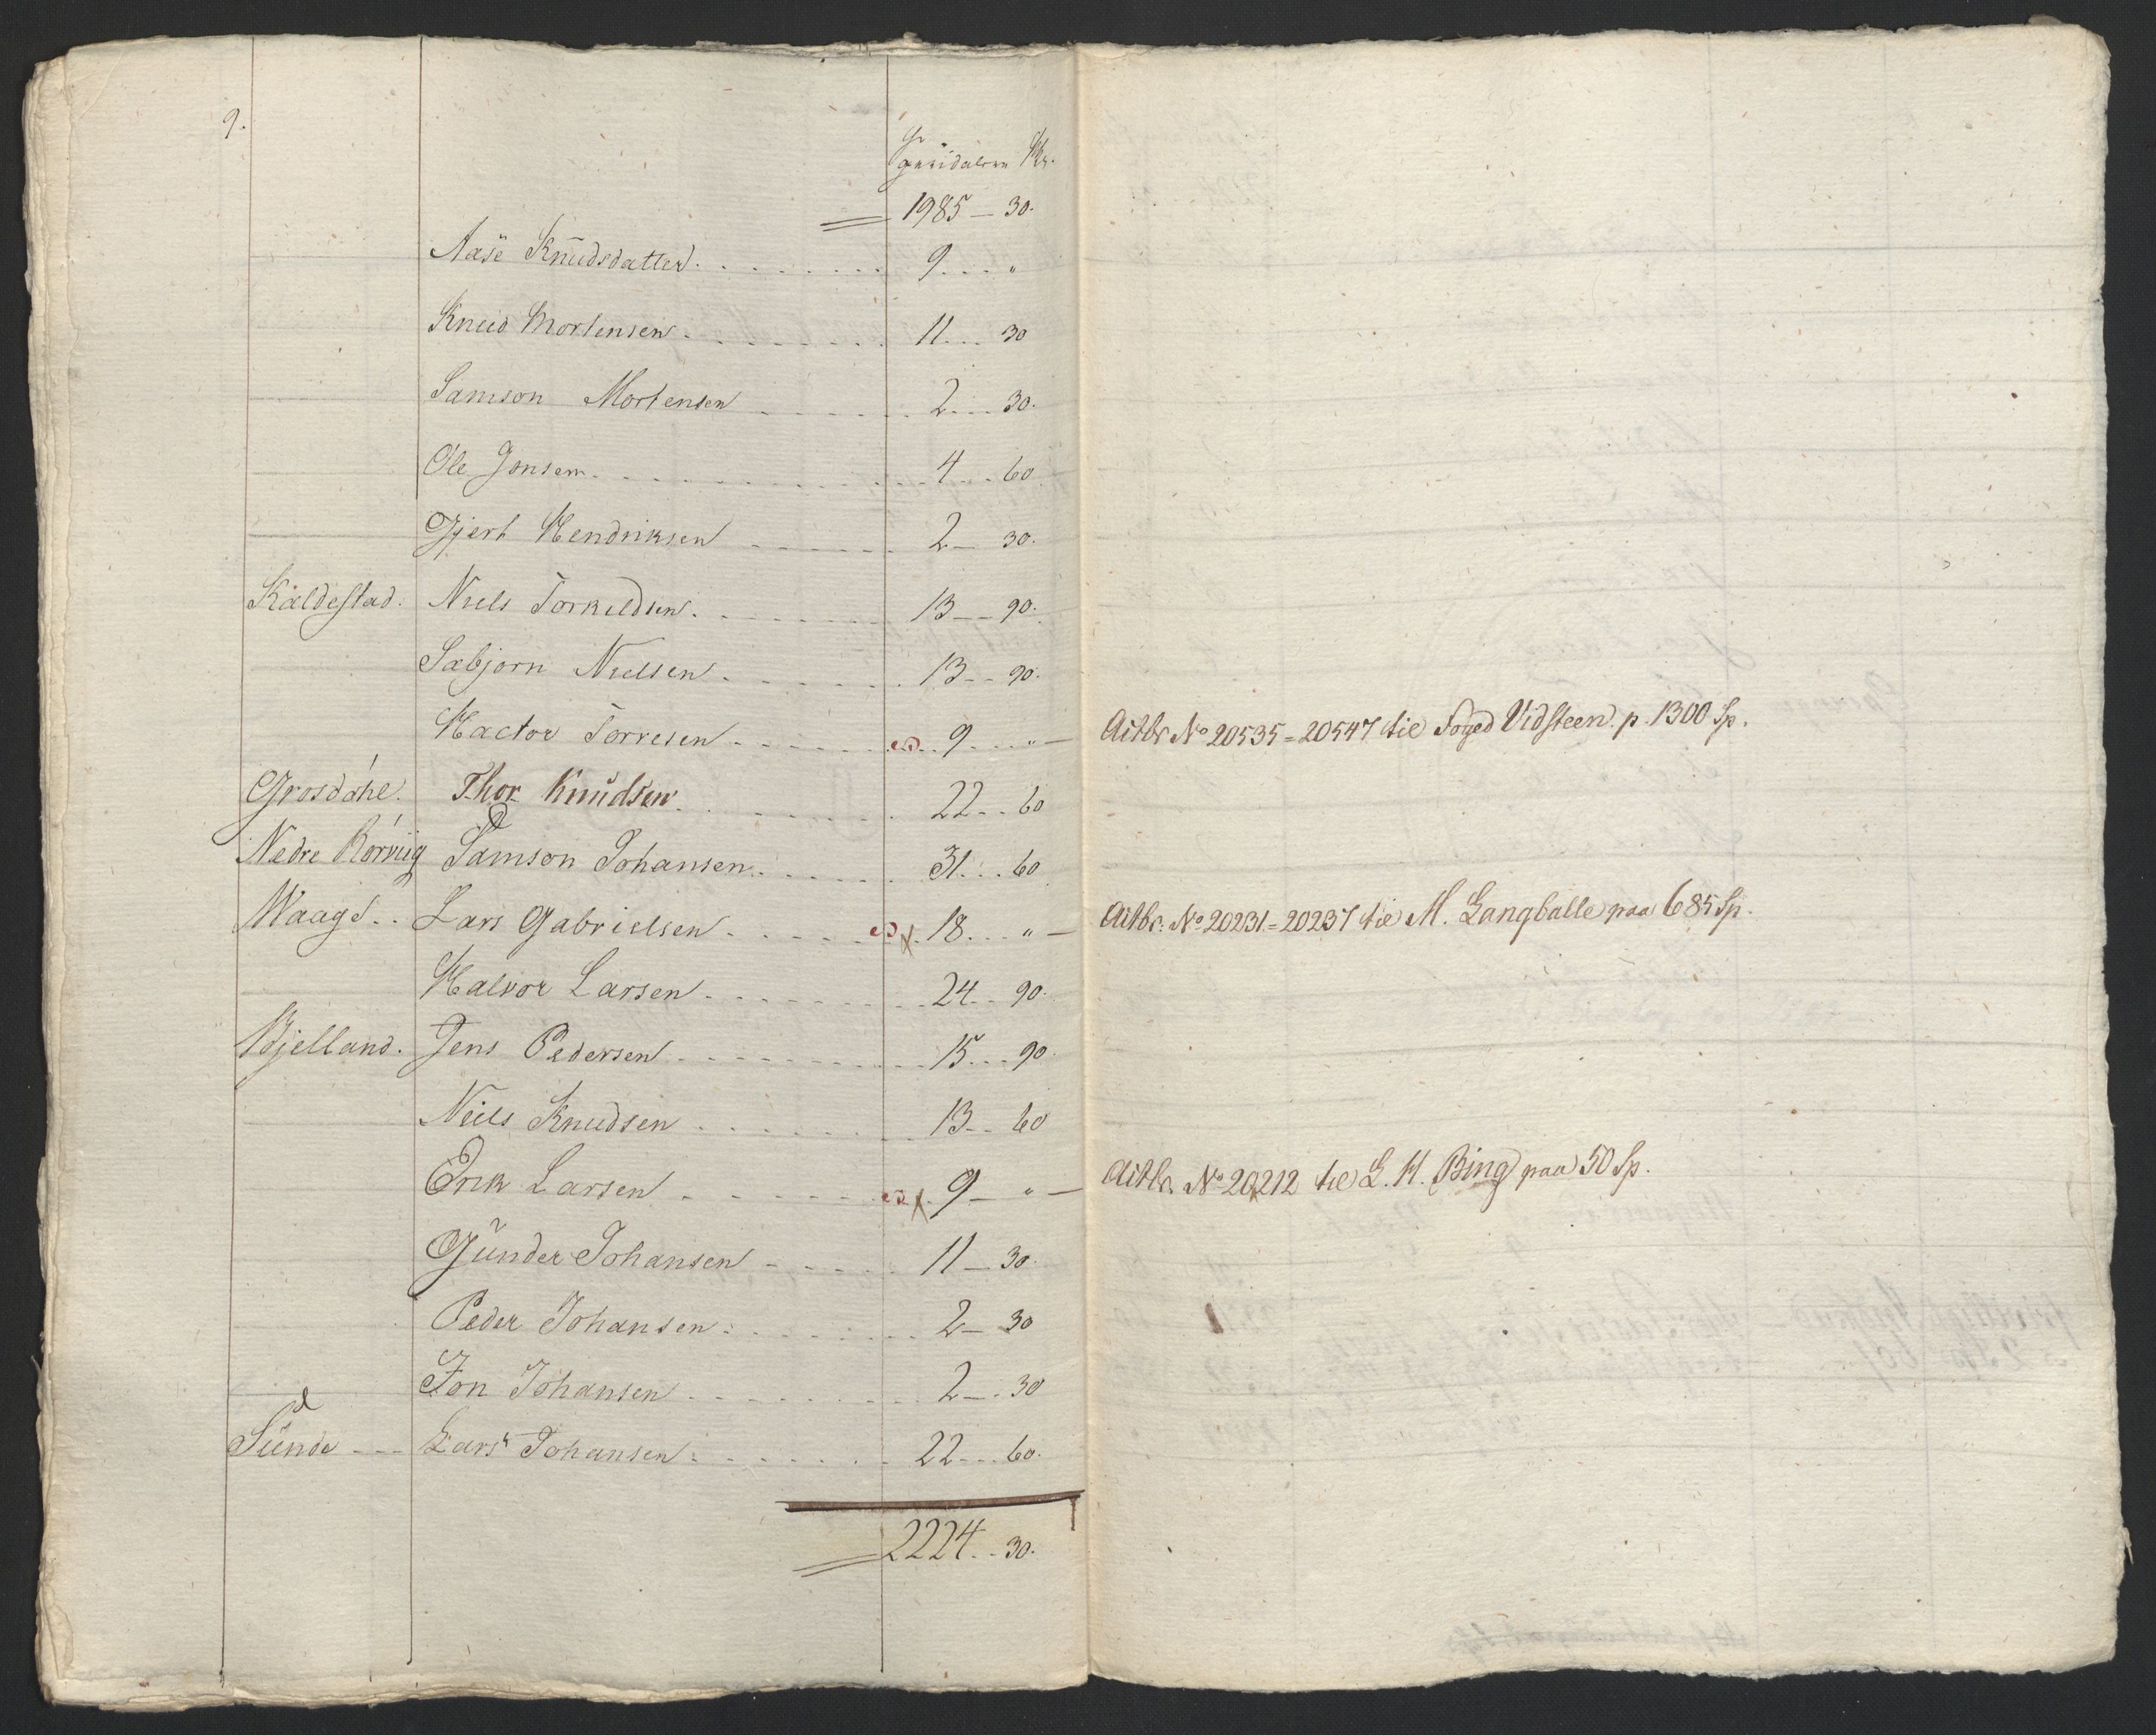 9.
Speciedaler Sk.
1985 — 30.
Aase Knudsdatter. 9 "
Knud Mortensen. 11 30
Samson Mortensen 2 30.
Ole Jonsen. 4 60
Gjert Hendriksen 2 — 30.
Kaldestad. Niels Torkildsen. 13 — 90.
Sæbjørn Nielsen. 13 — 90.
Hactor Torresen 9 " — Actbr No 20535=20547 til Foged Vidsteen. p. 1300 Sp.
Grosdahl. Thor Knudsen. 22 60
Nedre Rörviig Samson Johansen. 31 60
Waage. Lars Gabrielsen. 18 " — Actbr. No 20231=20237 til M. Langballe paa 685 Sp.
Halvor Larsen 24 90.
Bjelland. Jens Pedersen 15 90.
Niels Knudsen 13 60
Erik Larsen 9 — " — Actbr. No 20212 til L. H. Bing paa 50 Sp.
Gunder Johansen 11 — 30.
Peder Johansen. 2 — 30
Jon Johansen 2 — 30
Sunde Lars Johansen. 22 60.
2224 30.